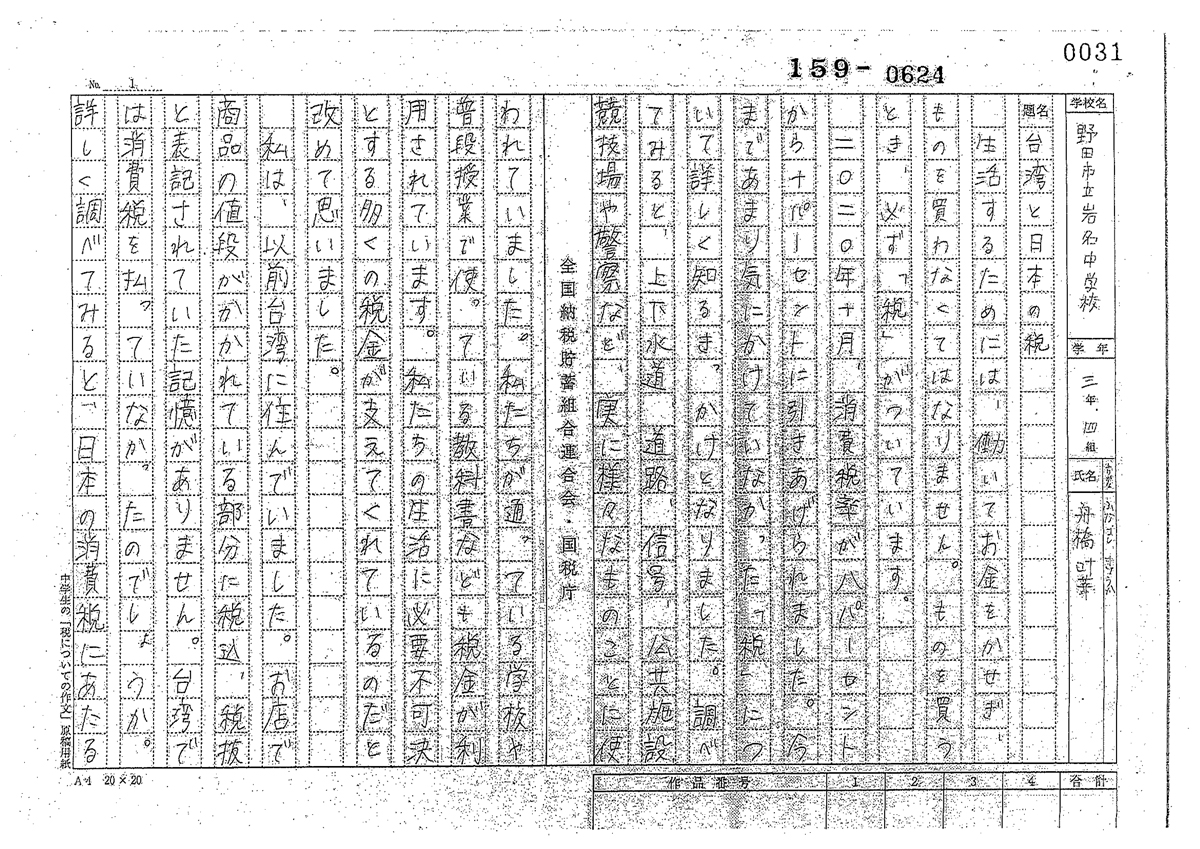 0031
159-0624
No. 1
学校名 野田市立岩名中学校
学年 三年四組
氏名 舟橋
題名 台湾と日本の税
生活するためには、働いてお金をかせぎ、
ものを買わなくてはなりません。ものを買う
とき、必ず「税」がついています。
二〇二〇年十月、消費税率が八パーセント
から十パーセントに引きあげられました。今
まであまり気にかけていなかった「税」につ
いて詳しく知るきっかけとなりました。調べ
てみると、上下水道、道路、信号、公共施設
競技場や警察など、更に様々なものことに使
全国納税貯蓄組合連合会・国税庁
われていました。私たちが通っている学校や
普段授業で使っている教科書なども税金が利
用されています。私たちの生活に必要不可決
とする多くの税金が支えてくれているのだと
改めて思いました。
私は、以前台湾に住んでいました。お店で
商品の値段がかかれている部分に税込、税抜
と表記されていた記憶がありません。台湾で
は消費税を払っていなかったのでしょうか。
詳しく調べてみると、日本の消費税にあたる
中学生の「税についての作文」原稿用紙
A4 20×20
作品番号 1 2 3 4 合計